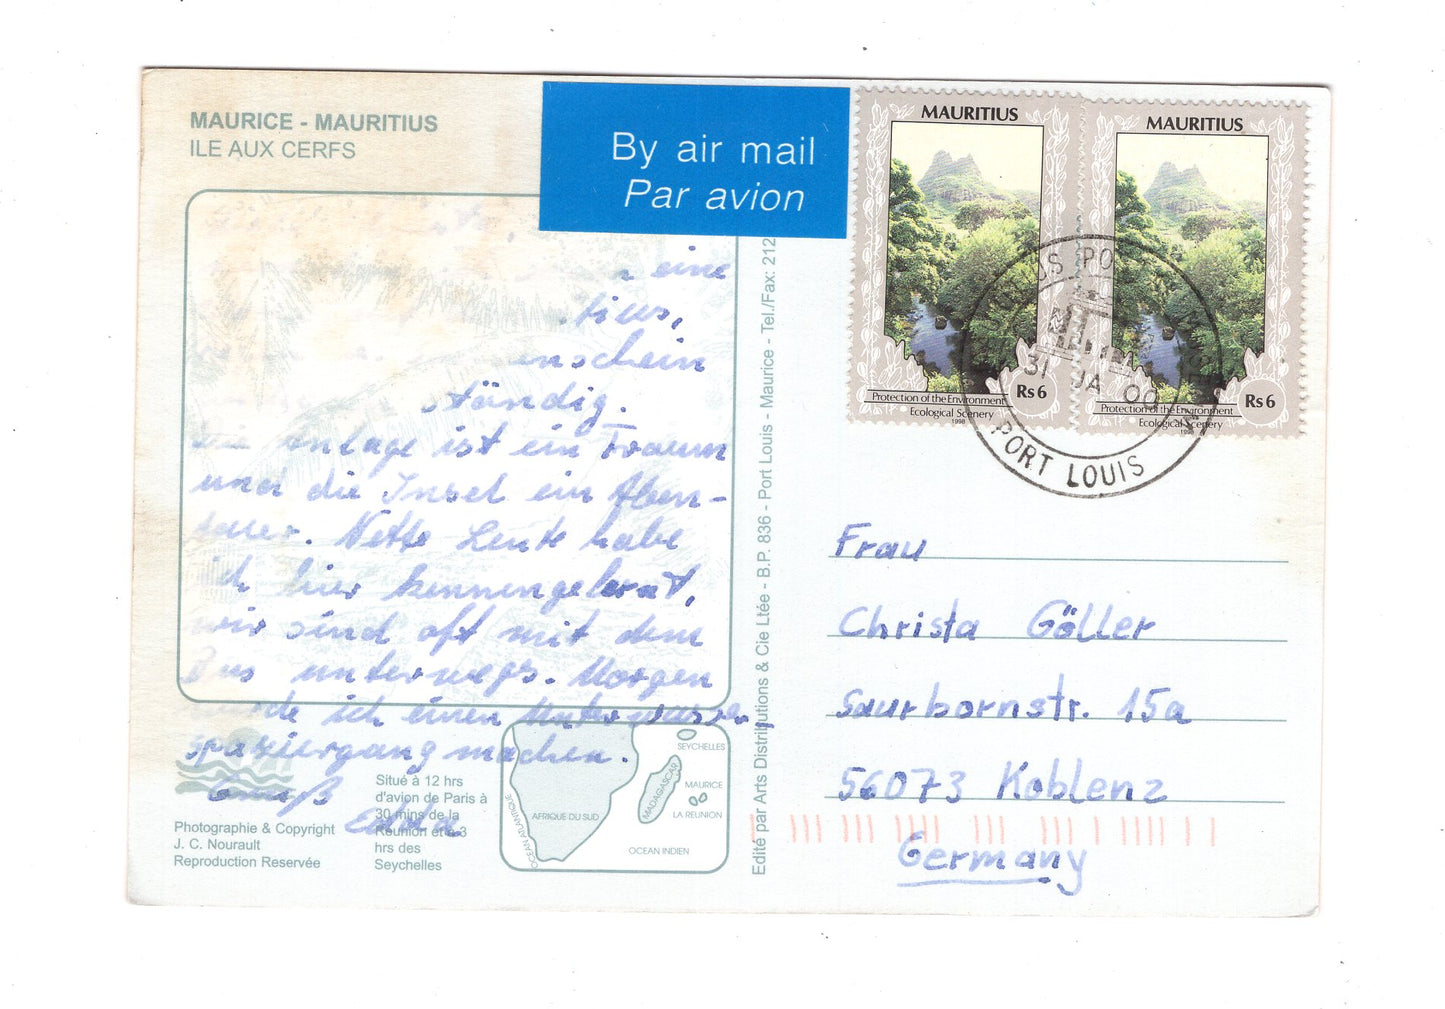 MAURICE - MAURITIUS
ILE AUX CERFS
By air mail
Par avion
eine
schein
ständig.
anlage ist ein Traum
und die Insel ein Aben-
teuer. Nette Leute habe
ich hier kennengelernt,
wir sind oft mit dem
Bus unterwegs. Morgen
werde ich einen Unterwasser-
spaziergang machen.
Gruß
Edda
Situé à 12 hrs
d'avion de Paris à
30 mins de la
Réunion et à 3
hrs des
Seychelles
Photographie & Copyright
J. C. Nourault
Reproduction Reservée
OCEAN ATLANTIQUE
AFRIQUE DU SUD
MADAGASCAR
SEYCHELLES
MAURICE
LA REUNION
OCEAN INDIEN
Edité par Arts Distributions & Cie Ltée - B.P. 836 - Port Louis - Maurice - Tel./Fax: 212
MAURITIUS
Rs 6
Protection of the Environment
Ecological Scenery
1998
MAURITIUS
Rs 6
Protection of the Environment
Ecological Scenery
1998
31 JA 00
PORT LOUIS
Frau
Christa Göller
Saurbornstr. 15a
56073 Koblenz
Germany